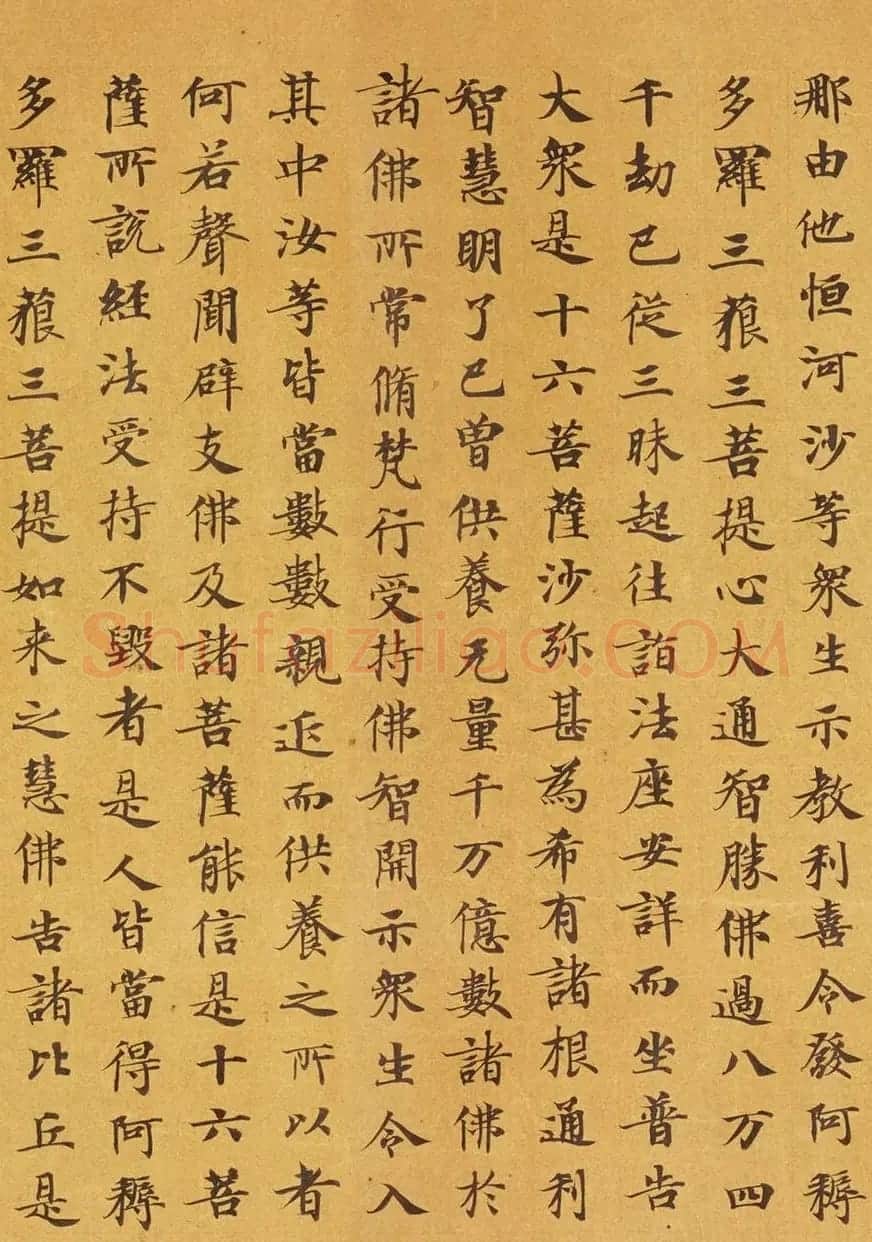 那由他恒河沙等衆生示教利喜令發阿耨
多羅三藐三菩提心大通智勝佛過八万四
千劫已從三昧起往詣法座安詳而坐普告
大衆是十六菩薩沙弥甚為希有諸根通利
智慧明了已曾供養无量千万億數諸佛於
諸佛所常脩梵行受持佛智開示衆生令入
其中汝等皆當數數親近而供養之所以者
何若聲聞辟支佛及諸菩薩能信是十六菩
薩所説經法受持不毀者是人皆當得阿耨
多羅三藐三菩提如来之慧佛告諸比丘是
Shufaziliao.COM